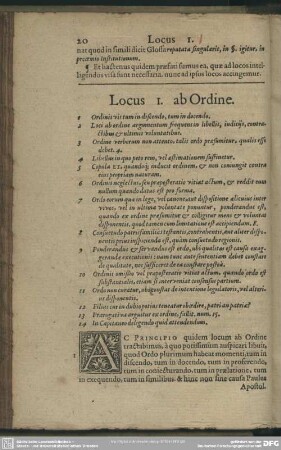 20 Locus 1.
nat quod in simili dicit Glossa reputata singularis, in §. igitur, in
prœmio Institutionum.
¶ Et hactenus quidem præfati sumus ea, quæ ad locos intel-
ligendos visa sunt necessaria, nunc ad ipsos locos accingemur.
Locus 1. ab Ordine.
1 Ordinis vis tum in discendo, tum in docendo.
2 Loci ab ordine argumentum frequens in libellis, iudicijs, contra-
ctibus & ultimis voluntatibus.
3 Ordine verborum non attento, talis ordo præsumitur, qualis esse
debet. 4.
4 Libellus in quo peto rem, vel æstimationem sustinetur.
5 Copula ET, quando inducit ordinem, & non coniungit contra
eius propriam naturam.
6 Ordinis neglectus, seu præposteratio vitiat actum, & reddit eum
nullum quando datus est pro forma.
7 Ordo rerum quo in lege, vel
vivos, vel in ultima voluntate ponuntur, ponderandus est,
quando ex ordine præsumitur & colligitur mens & voluntas
disponentis, quod tamen cum limitatione est accipiendum. 8.
8 Consuetudo patrisfamilias testantis, contrahentis, aut aliter dispo-
nentis prius inspicienda est, quàm consuetudo regionis.
9 Ponderandus & servandus est ordo, ubi qualitas est causa exag-
gerandæ executionis: nam tunc ante sententiam debet constare
de qualitate, nec sufficeret de ea constare postea.
10 Ordinis omissio vel præposteratio vitiat actum, quando ordo est
substantialis, etiam si interveniat consensus partium.
11 Ordo non curatur, ubi quæstio de intentione legislatoris, vel alterius
disponentis.
12 Filius cur in dubio potius teneatur obedire, patri an patriæ?
13 Prærogativa arguitur ex ordine, fallit, num. 15.
14 In Capitaneo deligendo quid attendendum.
1 AC PRINCIPIO quidem locum ab Ordine
tractabimus, à quo potissimum auspicari libuit,
quod Ordo plurimum habeat momenti, tum in
discendo, tum in docendo, tum in proferendo,
tum in consecturando, tum in prælatione, tum
in exequendo, tum in similibus & hunc non sine causa Paulus
Apostol.